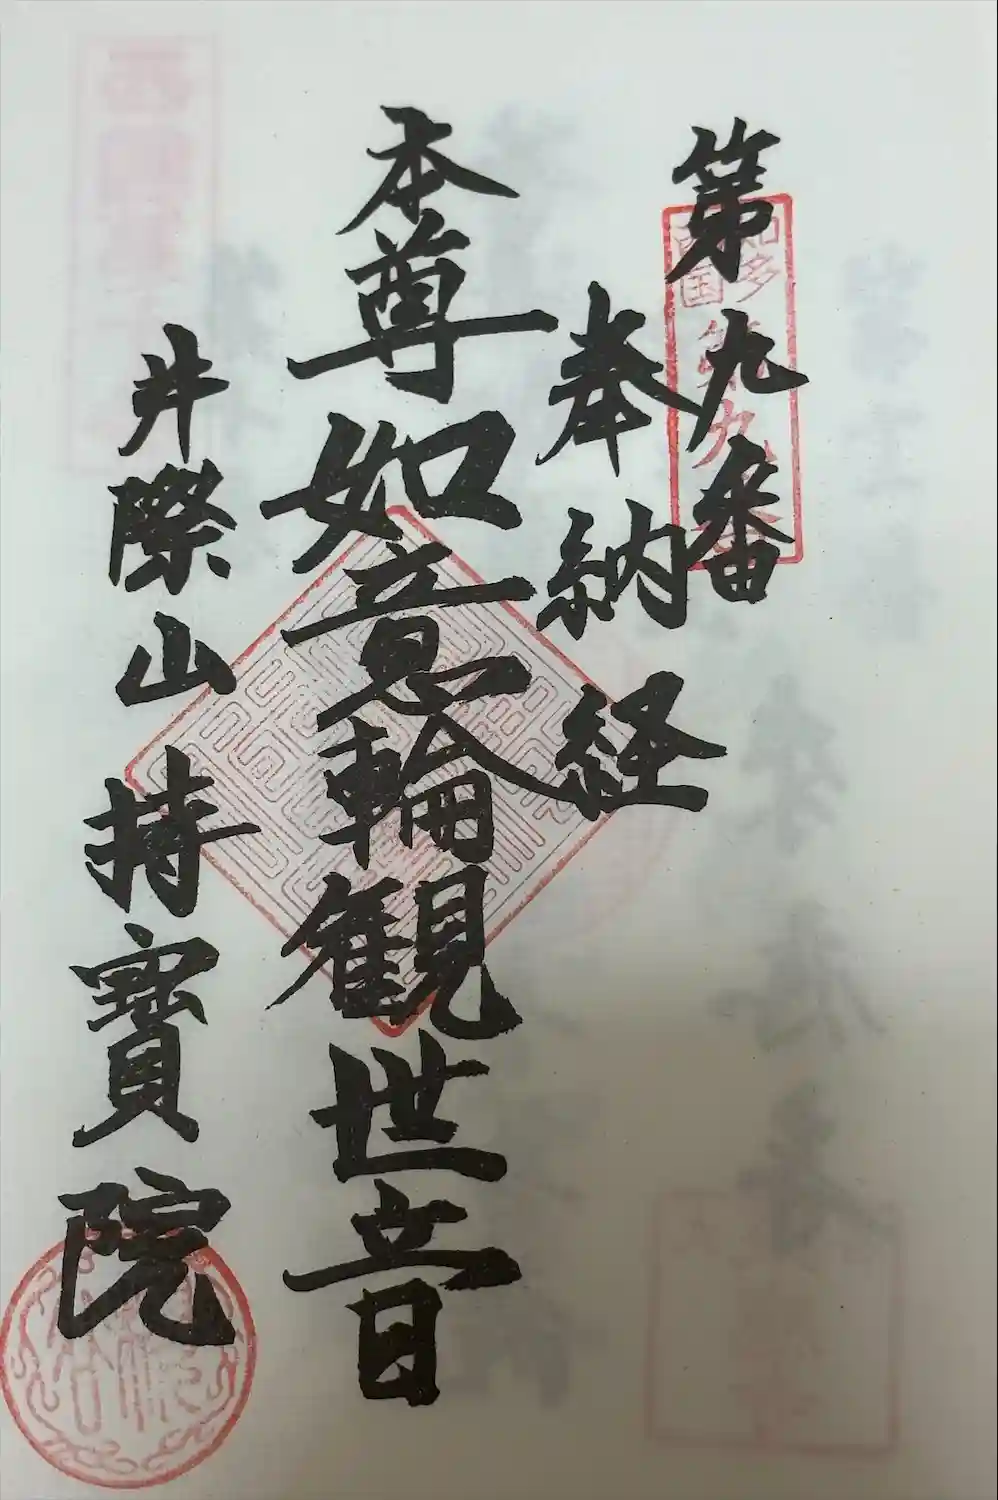 第九番
奉納経
本尊如意輪観世音
井際山持寳院
知多
西国
第九番